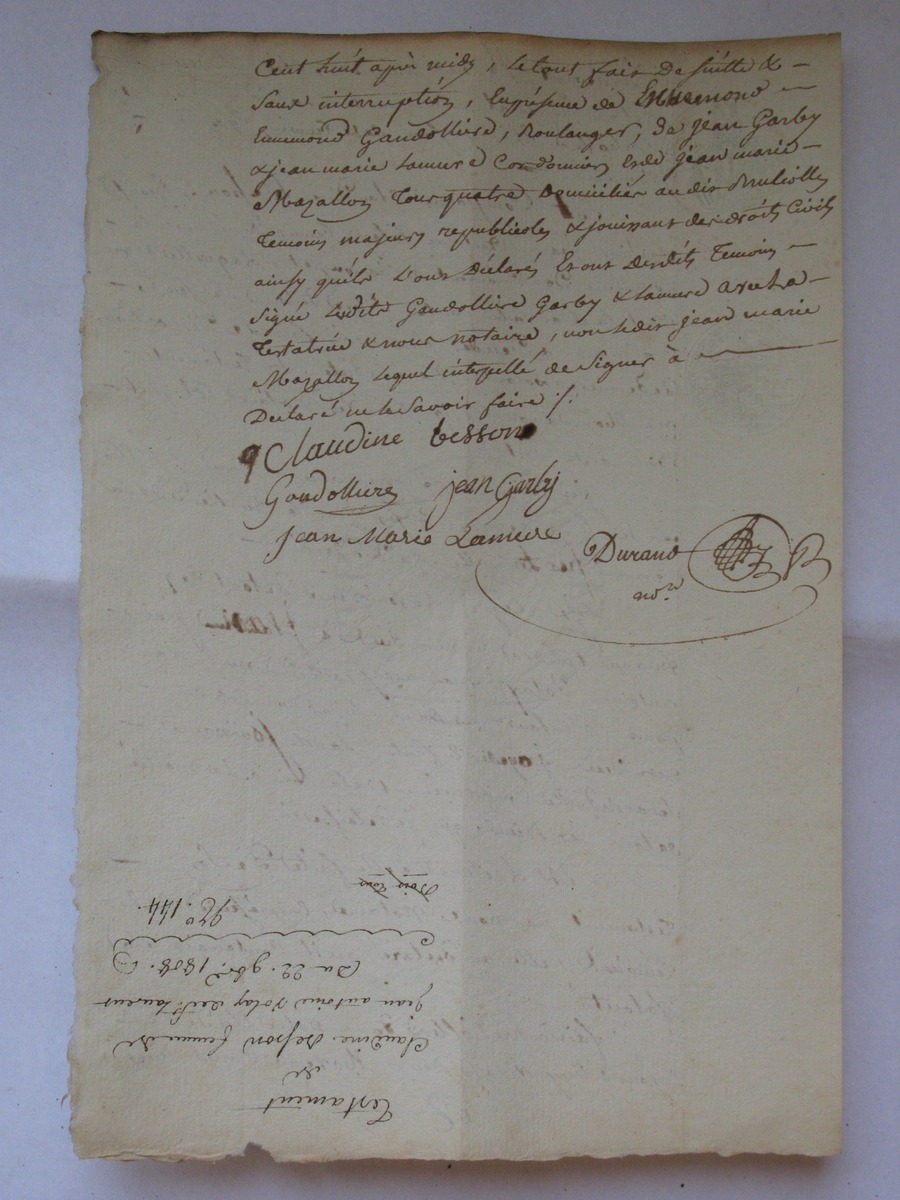 Cent huit après midy, le tout fait de suitte &
sans interruption, En présence de
Emmond Gaudolliere, Boulanger, de jean Garby
& jean marie Lamure Cordonnier Et de jean marie
Mazallon Tous quatre Domiciliés au dit
Temoins majeurs republicoles & jouissant des droits Civils
ainsy qu'ils L'ont Déclarés Et ont desdits Temoins
signé Lesdits Gaudolliere Garby & Lamure avec La
Testatrice & nous notaire, non ledit jean marie
Mazallon Lequel interpellé de Signer à
Déclaré ne le Savoir faire /.
Claudine besson
Gaudolliere jean Garby
jean Marie Lamure
Durand
no.re
Testament
de
Claudine Besson femme de
jean antoine
Du 22. 9bre 1808.
N.o 144.